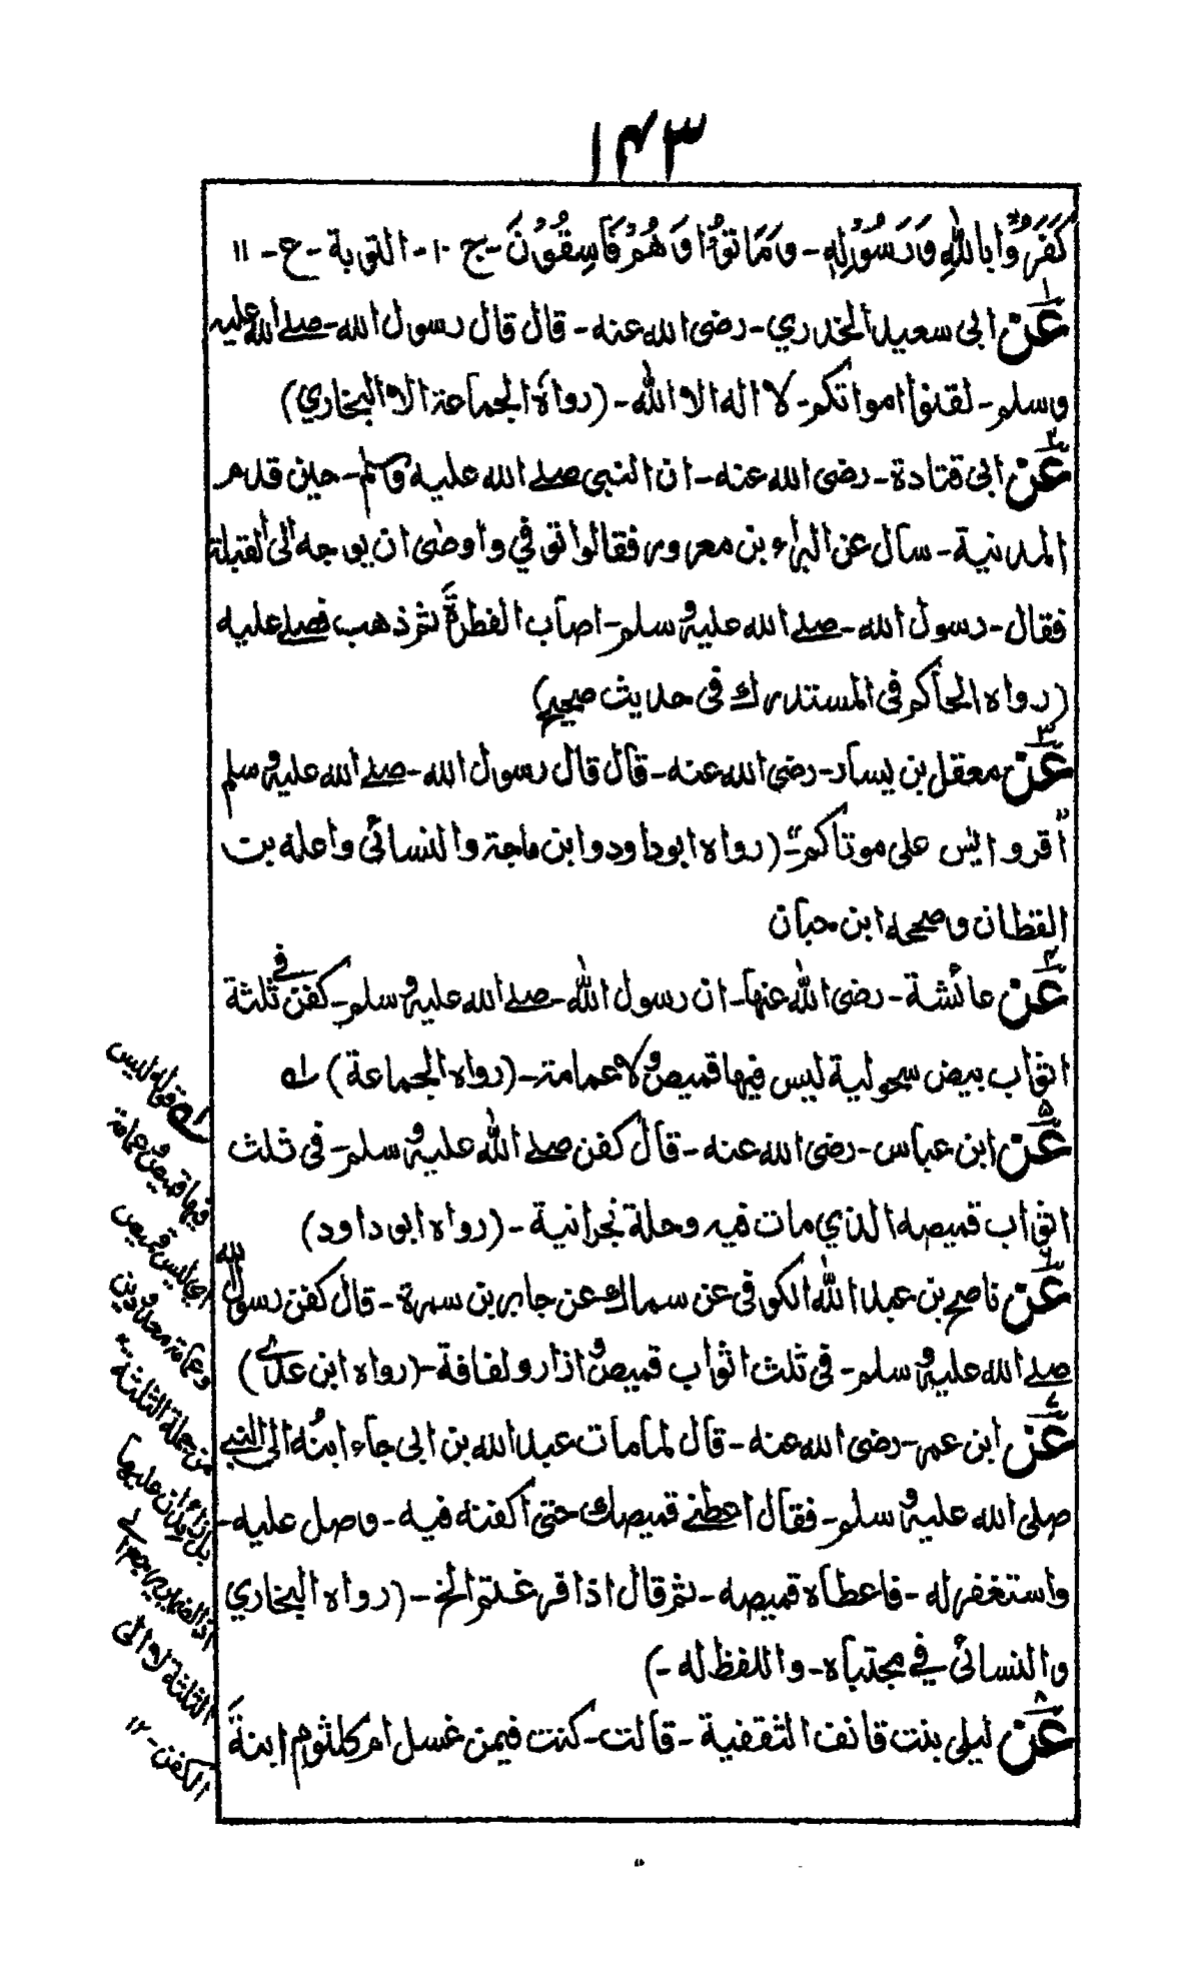 ١٤٣
كَفَرُوْا بِاللّٰهِ وَرَسُوْلِهٖ - وَمَاتُوْا وَهُمْ فَاسِقُوْنَ - ج ١٠ - التوبة - ع - ١١
١ عن ابى سعيد الخدري - رضى الله عنه - قال قال رسول الله - صلے الله عليه
وسلم - لقنوا امواتكم - لا اله الا اللّٰه - (رواه الجماعة الا البخاري)
٢ عن ابى قتادة - رضى الله عنه - ان النبى صلے الله عليه وسلم - حين قدم
المدنية - سال عن البراء بن معرور فقالوا توفي واوصٰى ان يوجه الى القبلة
فقال - رسول الله - صلے الله عليه وسلم - اصاب الفطرة ثم ذهب فصلے عليه
(رواه الحاكم فى المستدرك فى حديث صحيح)
٣ عن معقل بن يسار - رضى الله عنه - قال قال رسول الله - صلے الله عليه وسلم
"اقروا يٰس على موتاكم" - (رواه ابوداود وابن ماجة والنسائى واعله بت
القطان وصححه ابن حبان
٤ عن عائشة - رضى اللّٰه عنها - ان رسول اللّٰه - صلے الله عليه وسلم - كفن فے ثلثة
اثواب بيض سحولية ليس فيها قميص ولا عمامة - (رواه الجماعة) له
٥ عن ابن عباس - رضى الله عنه - قال كفن صلے اللّٰه عليه وسلم - فى ثلث
اثواب قميصه الذي مات فيه وحلة نجرانية - (رواه ابو داود)
٦ عن ناصح بن عبد اللّٰه الكوفى عن سماك عن جابر بن سمرة - قال كفن رسول اللّٰه
صلے الله عليه وسلم - فى ثلث اثواب قميص و ازار ولفافة - (رواه ابن عدے)
٧ عن ابن عمر - رضى الله عنه - قال لما مات عبد الله بن ابى جاء ابنُه الى النبے
صلى الله عليه وسلم - فقال اعطنے قميصك حتى اكفنه فيه - وصل عليه -
واستغفر له - فاعطاه قميصه - ثم قال اذا فرغتم الخ - (رواه البخاري
والنسائى في مجتباه - واللفظ له -)
٨ عن ليلى بنت قانف الثقفية - قالت - كنت فيمن غسل ام كلثوم ابنة
له قوله ليس
فيها قميص و عمامة
اي ليس قميص
وعمامة معدودين
من جملة الثلثة
بل زائدان عليها
الثلثة لا الى
الكفن - ١٢